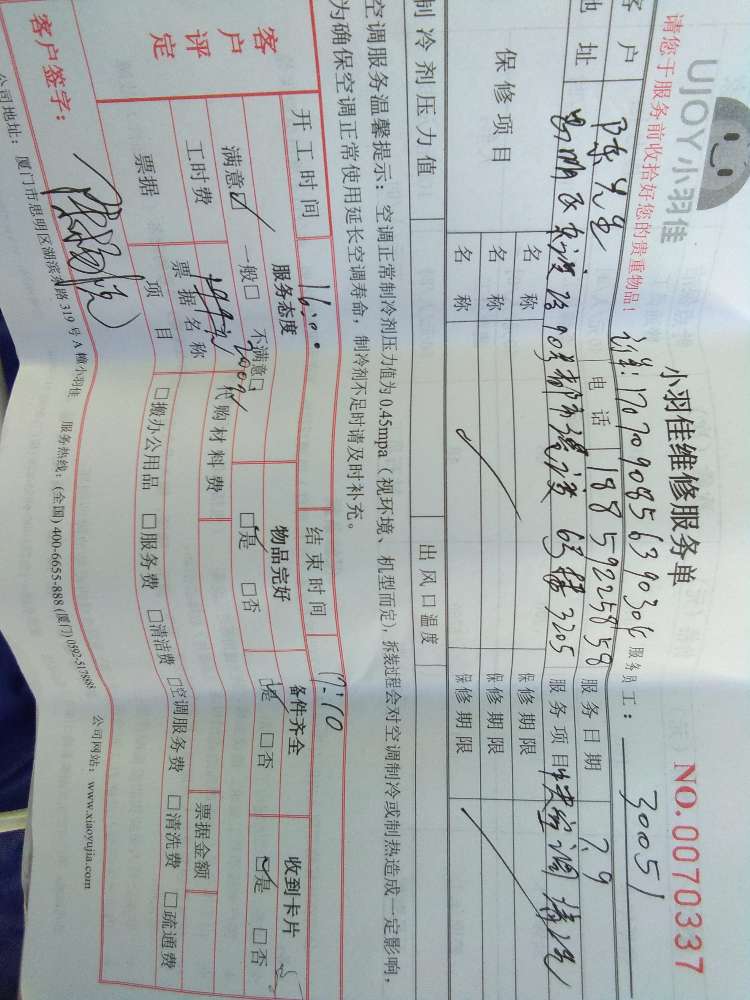 UJOY小羽佳
小羽佳维修服务单
NO.0070337
请您于服务前收拾好您的贵重物品!
1707090856390306 服务员工: 30051
客户 陈先生 电话 18859225858 服务日期 7.9
地址 思明区 90号都市港湾 3205 服务项目 空调清洗
保修项目 名称 保修期限
名称 保修期限
名称 保修期限
制冷剂压力值 出风口温度
空调服务温馨提示: 空调正常制冷剂压力值为 0.45mpa(视环境、机型而定), 拆装过程会对空调制冷或制热造成一定影响,
为确保空调正常使用延长空调寿命, 制冷剂不足时请及时补充。
开工时间 16:00 结束时间 17:10
客户评定
服务态度 物品完好 备件齐全 收到卡片
满意☑ 一般□ 不满意□ ☑是 □否 ☑是 □否 ☑是 □否
工时费 代购材料费
票据 票据名称 票据金额
项目 □搬办公用品 □服务费 □清洁费 □空调服务费 □清洗费 □疏通费
客户签字:
公司地址: 厦门市思明区湖滨东路 319 号 A 幢小羽佳 服务热线: (全国) 400-6655-888 (厦门) 0592-5178885 公司网站: www.xiaoyujia.com